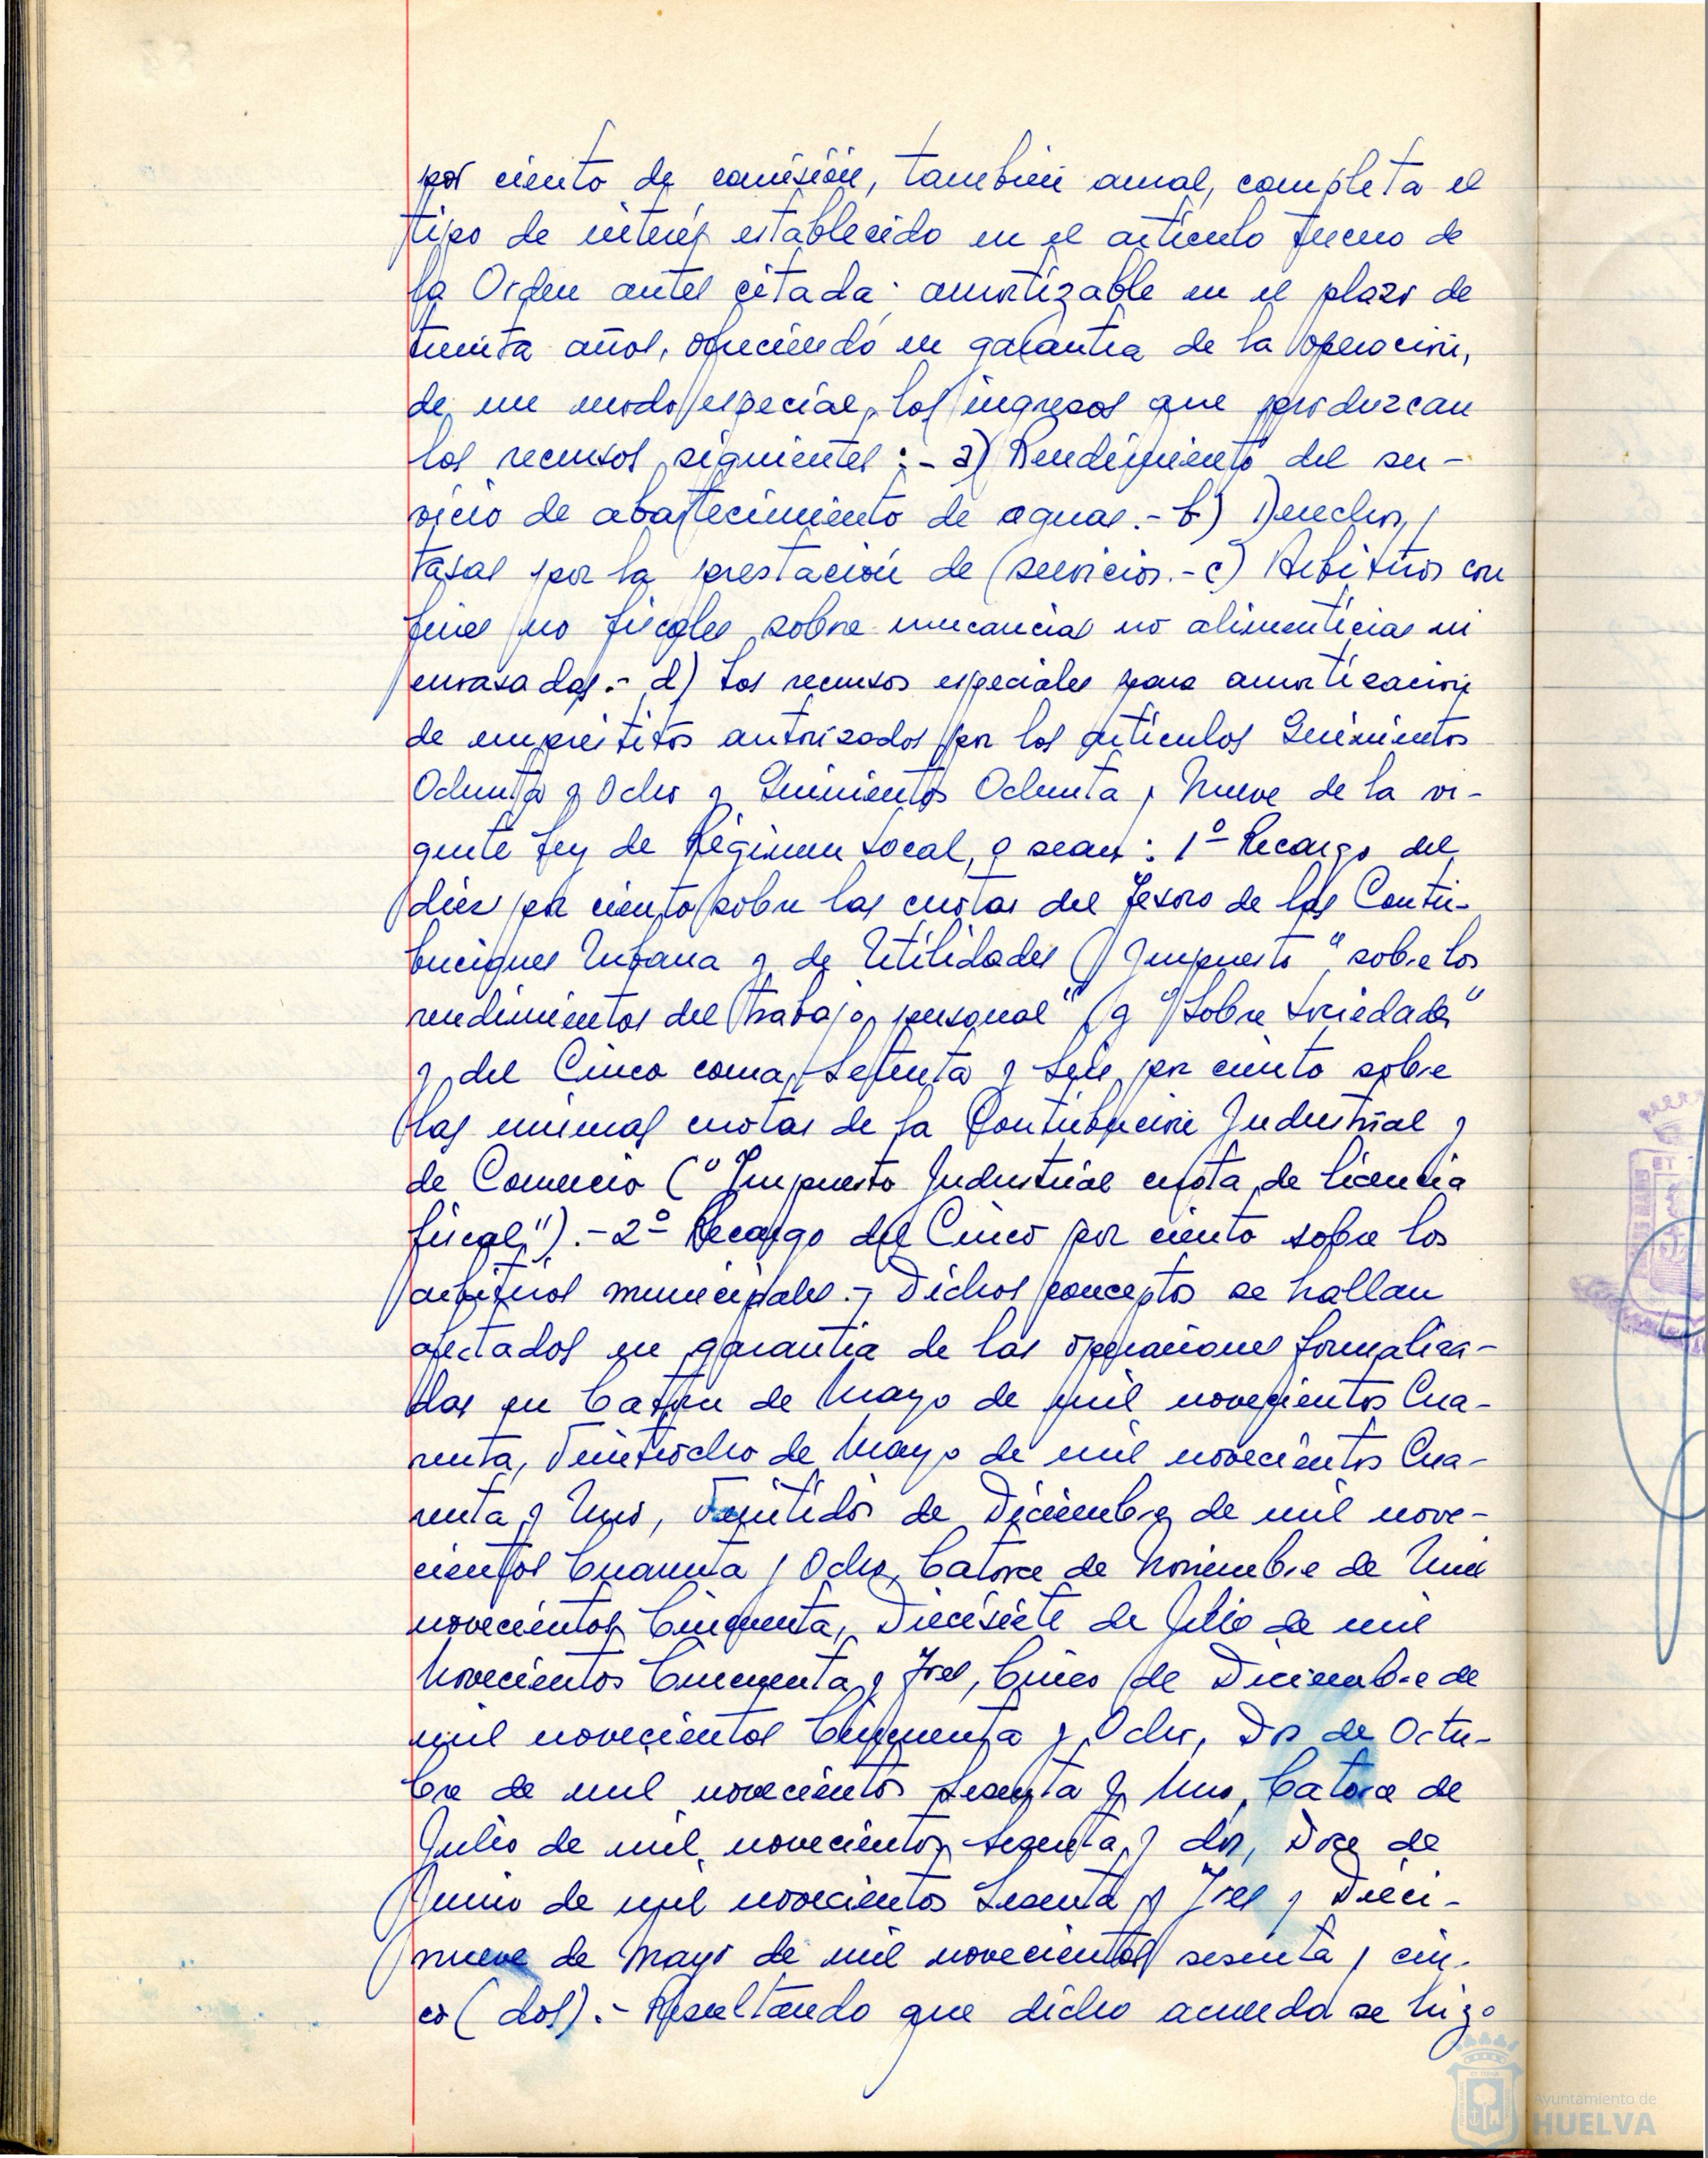 por ciento de comisión, también anual, completa el
tipo de interés establecido en el artículo tercero de
la Orden antes citada; amortizable en el plazo de
treinta años, ofreciendo en garantía de la operación,
de un modo especial, los ingresos que produzcan
los recursos siguientes:- a) Rendimiento del ser-
vicio de abastecimiento de aguas.- b) Derechos y
tasas por la prestación de servicios.- c) Arbitrios con
fines no fiscales sobre mercancías no alimenticias ni
envasadas.- d) Los recursos especiales para amortización
de empréstitos autorizados por los artículos Quinientos
Ochenta y Ocho y Quinientos Ochenta y Nueve de la vi-
gente Ley de Régimen Local, o sean: 1º Recargo del
diez por ciento sobre las cuotas del Tesoro de las Contri-
buciones Urbana y de Utilidades (Impuesto "sobre los
rendimientos del trabajo personal" y "Sobre Sociedades"
y del Cinco coma Setenta y Seis por ciento sobre
las mismas cuotas de la Contribución Industrial y
de Comercio ("Impuesto Industrial cuota de licencia
fiscal").- 2º Recargo del Cinco por ciento sobre los
arbitrios municipales.- Dichos conceptos se hallan
afectados en garantía de las operaciones formaliza-
das en Catorce de Mayo de mil novecientos Cua-
renta, Veintiocho de Mayo de mil novecientos Cua-
renta y Uno, Veintidós de Diciembre de mil nove-
cientos Cuarenta y Ocho, Catorce de Noviembre de Mil
novecientos Cincuenta, Diecisiete de Julio de mil
Novecientos Cincuenta y Tres, Cinco de Diciembre de
mil novecientos Cincuenta y Ocho, Dos de Octu-
bre de mil novecientos Sesenta y Uno, Catorce de
Julio de mil novecientos Sesenta y dos, Doce de
Junio de mil novecientos Sesenta y Tres y Dieci-
nueve de Mayo de mil novecientos sesenta y cin-
co (dos).- Resultando que dicho acuerdo se hizo
Ayuntamiento de
HUELVA